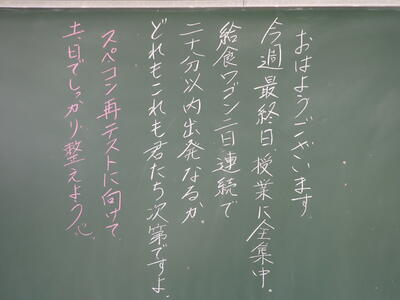 おはようございます
今週最終日授業に全集中。
給食ワゴン二日連続で
二十分以内出発なるか。
どれもこれも君たち次第ですよ。
スペコン再テストに向けて
土、日でしっかり整えよう